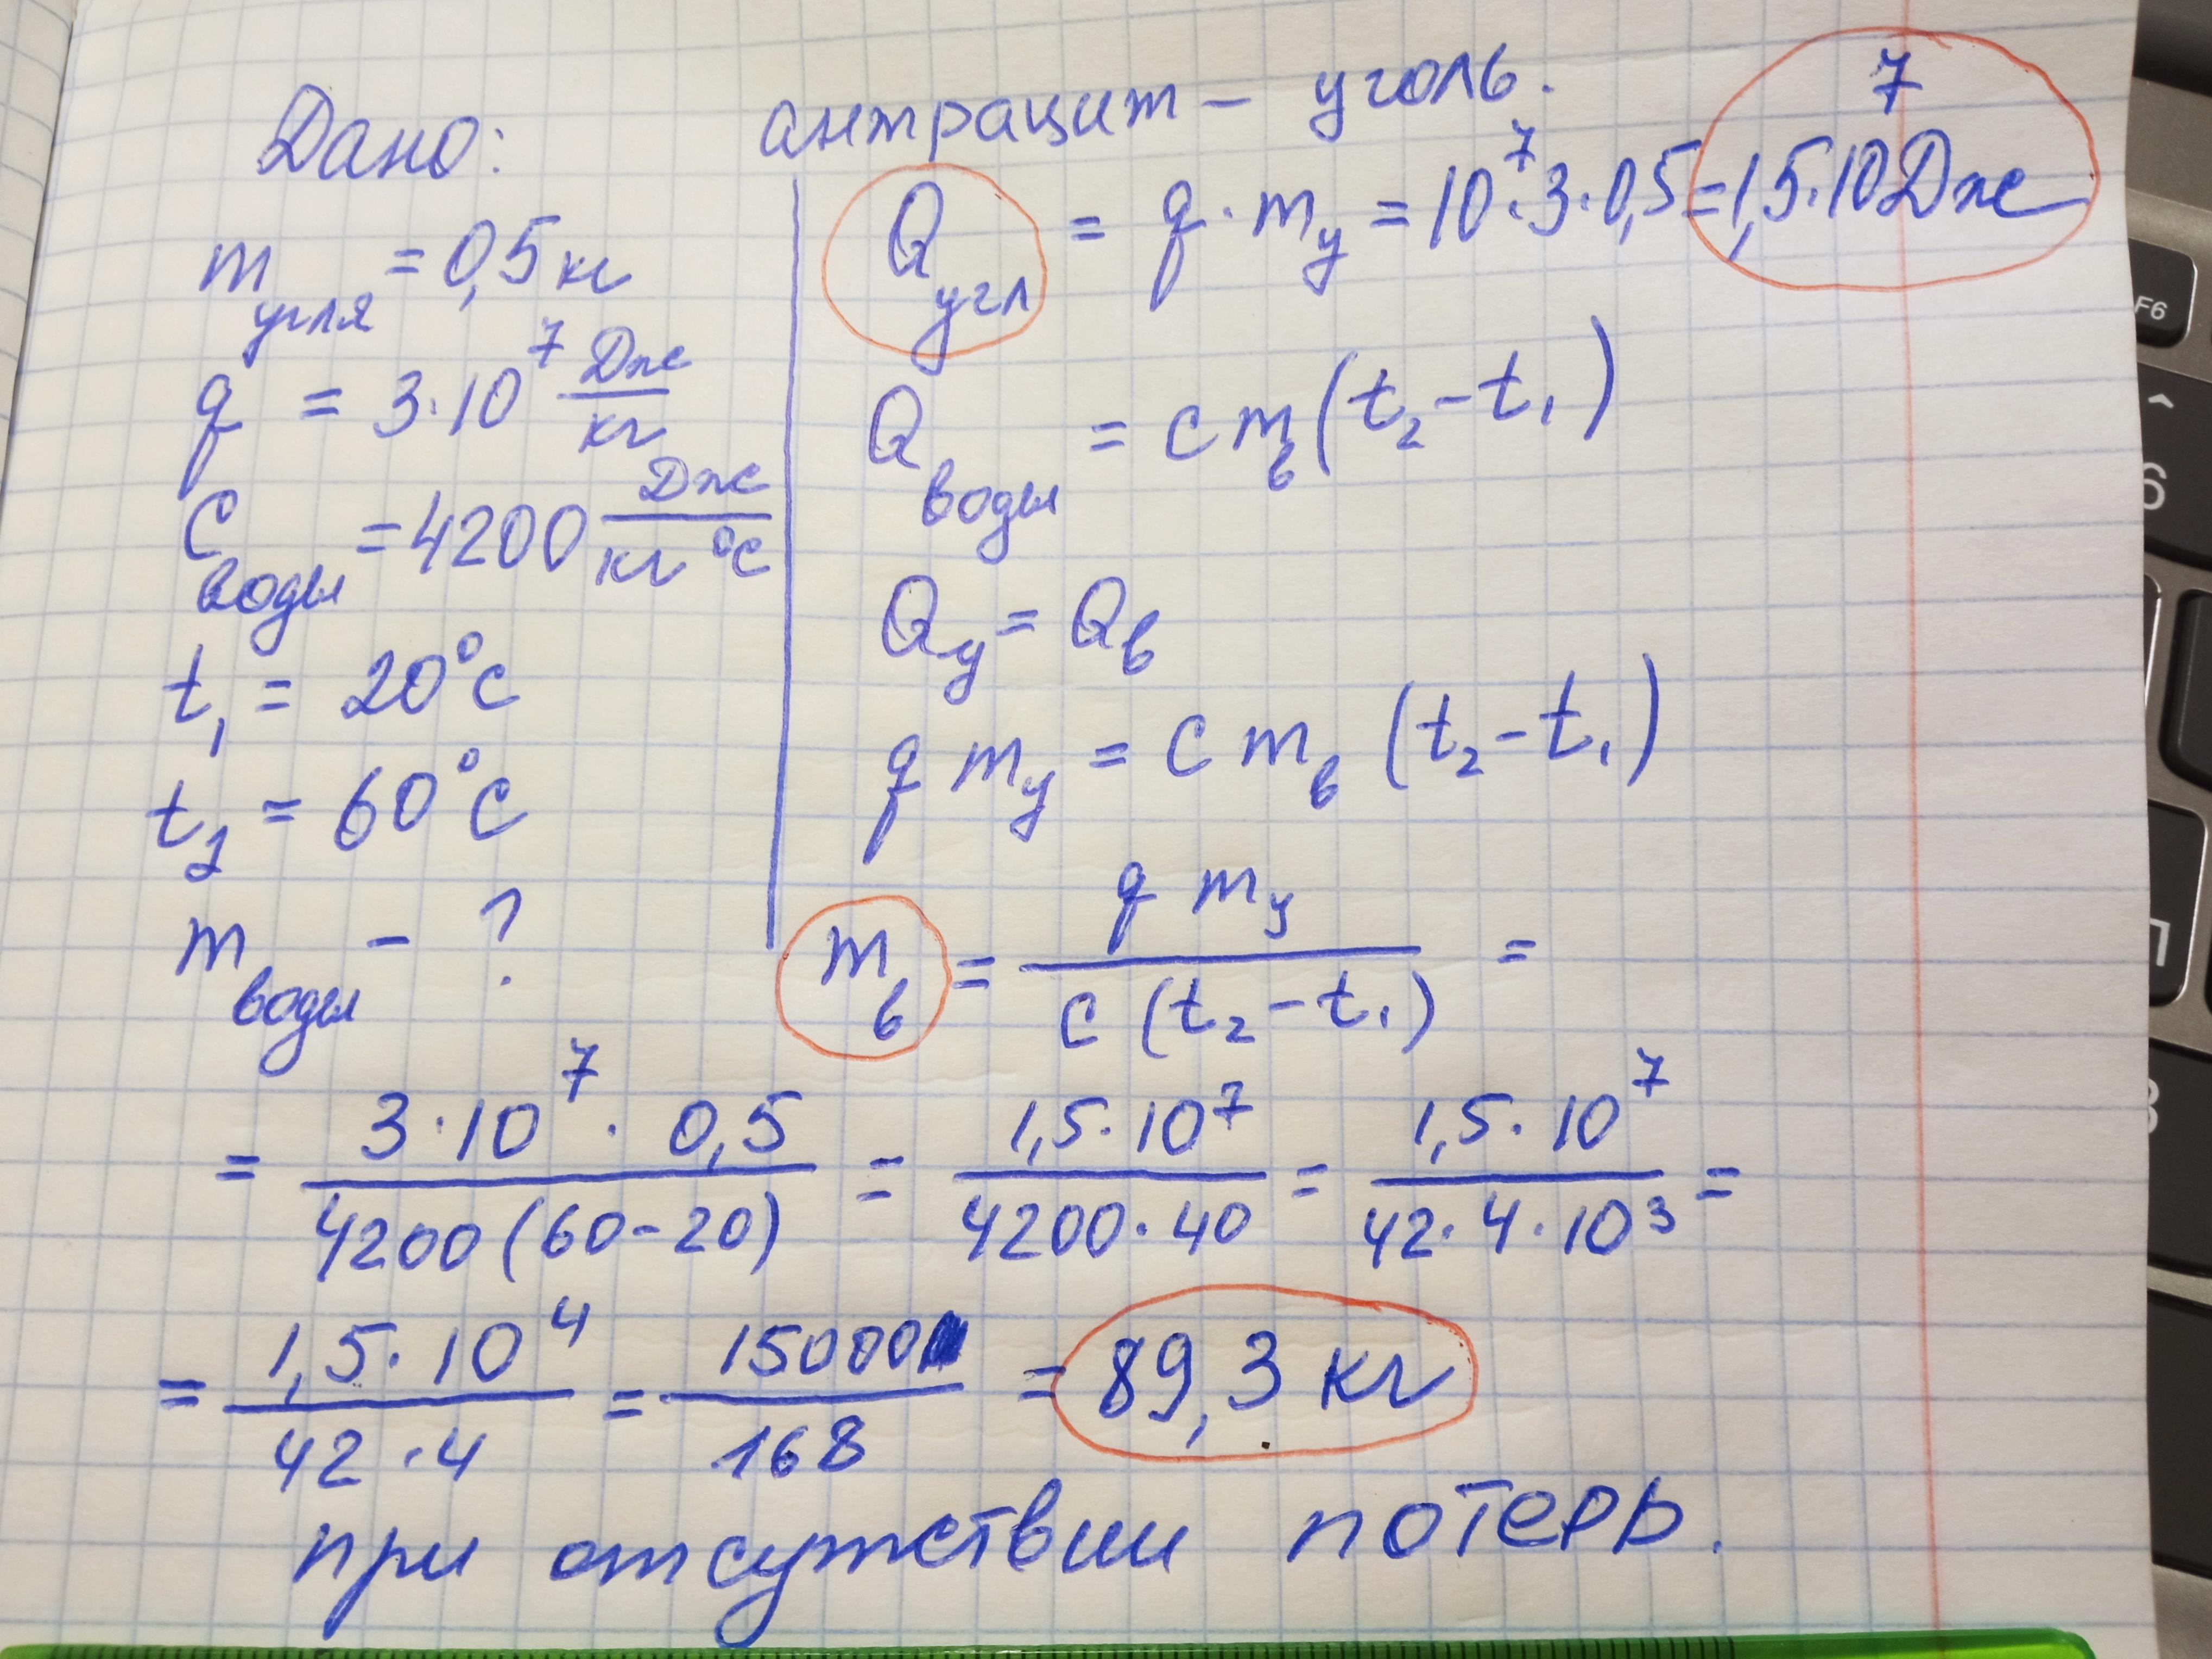 антрацит – уголь.
Дано:
m угля = 0,5 кг
q = 3·10⁷ Дж/кг
C воды = 4200 Дж/кг °C
t₁ = 20°C
t₂ = 60°C
m воды – ?
Q угл = q · m у = 10⁷·3·0,5 = 1,5·10⁷ Дж
Q воды = c m в (t₂ – t₁)
Q у = Q в
q m у = c m в (t₂ – t₁)
m в = q m у / c (t₂ – t₁) =
= 3·10⁷ · 0,5 / 4200 (60 – 20) = 1,5·10⁷ / 4200·40 = 1,5·10⁷ / 42·4·10³ =
= 1,5·10⁴ / 42·4 = 15000 / 168 = 89,3 кг
при отсутствии потерь.
F6
^
6
П